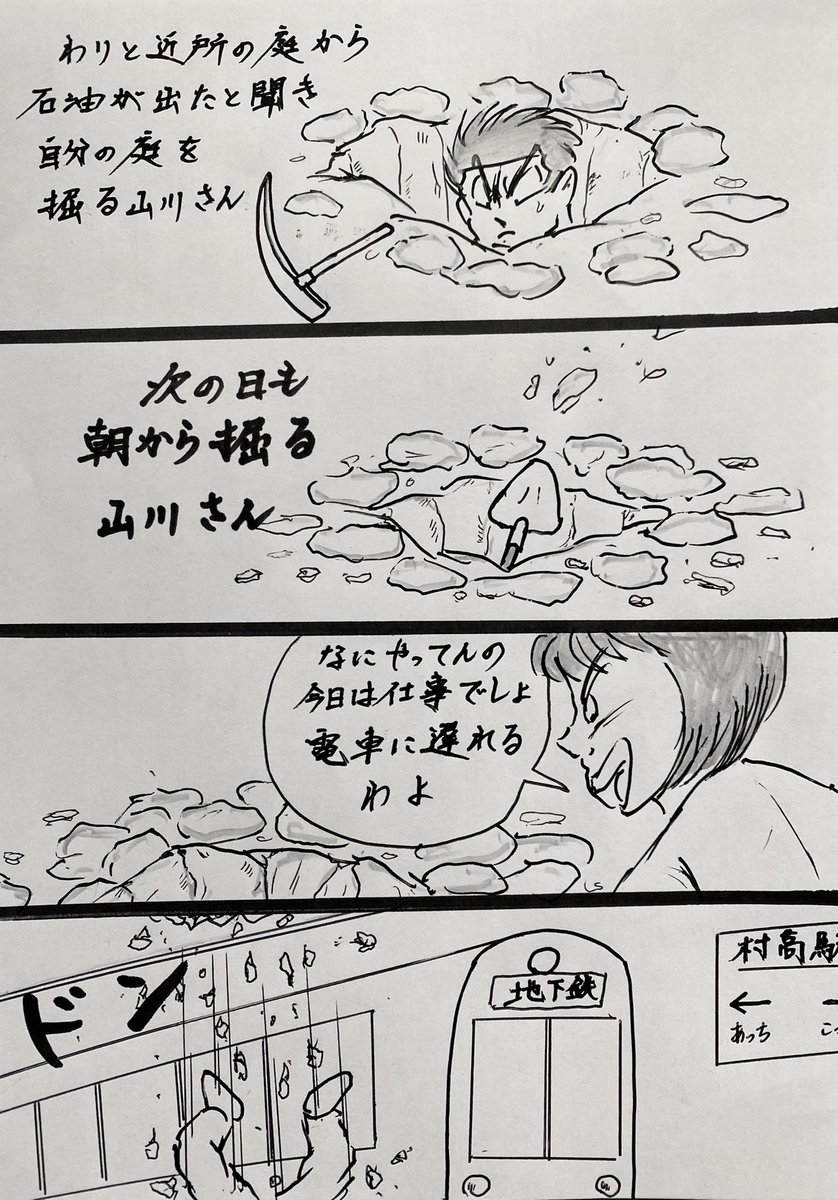 わりと近所の庭から
石油が出たと聞き
自分の庭を
掘る山川さん
次の日も
朝から掘る
山川さん
なにやってんの
今日は仕事でしょ
電車に遅れる
わよ
ドン
地下鉄
村高駅
←
あっち
こっ